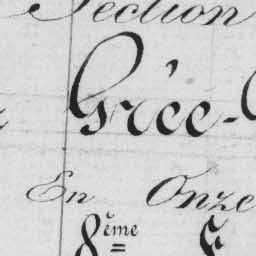 Section
Grée-
En Onze
8ème